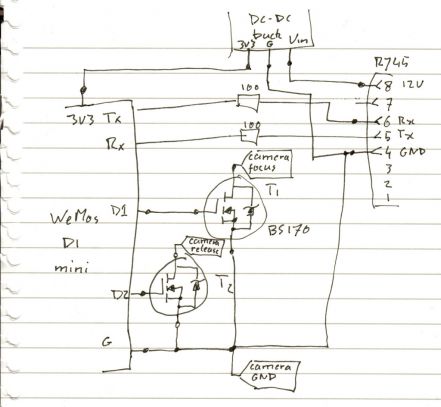 DC-DC
buck
3V3 G Vin
RJ45
8 12V
7
6 Rx
5 Tx
4 GND
3
2
1
100
100
3V3 Tx
Rx
camera
focus
T1
BS170
D1
WeMos
D1
mini
camera
release
T2
D2
G
camera
GND